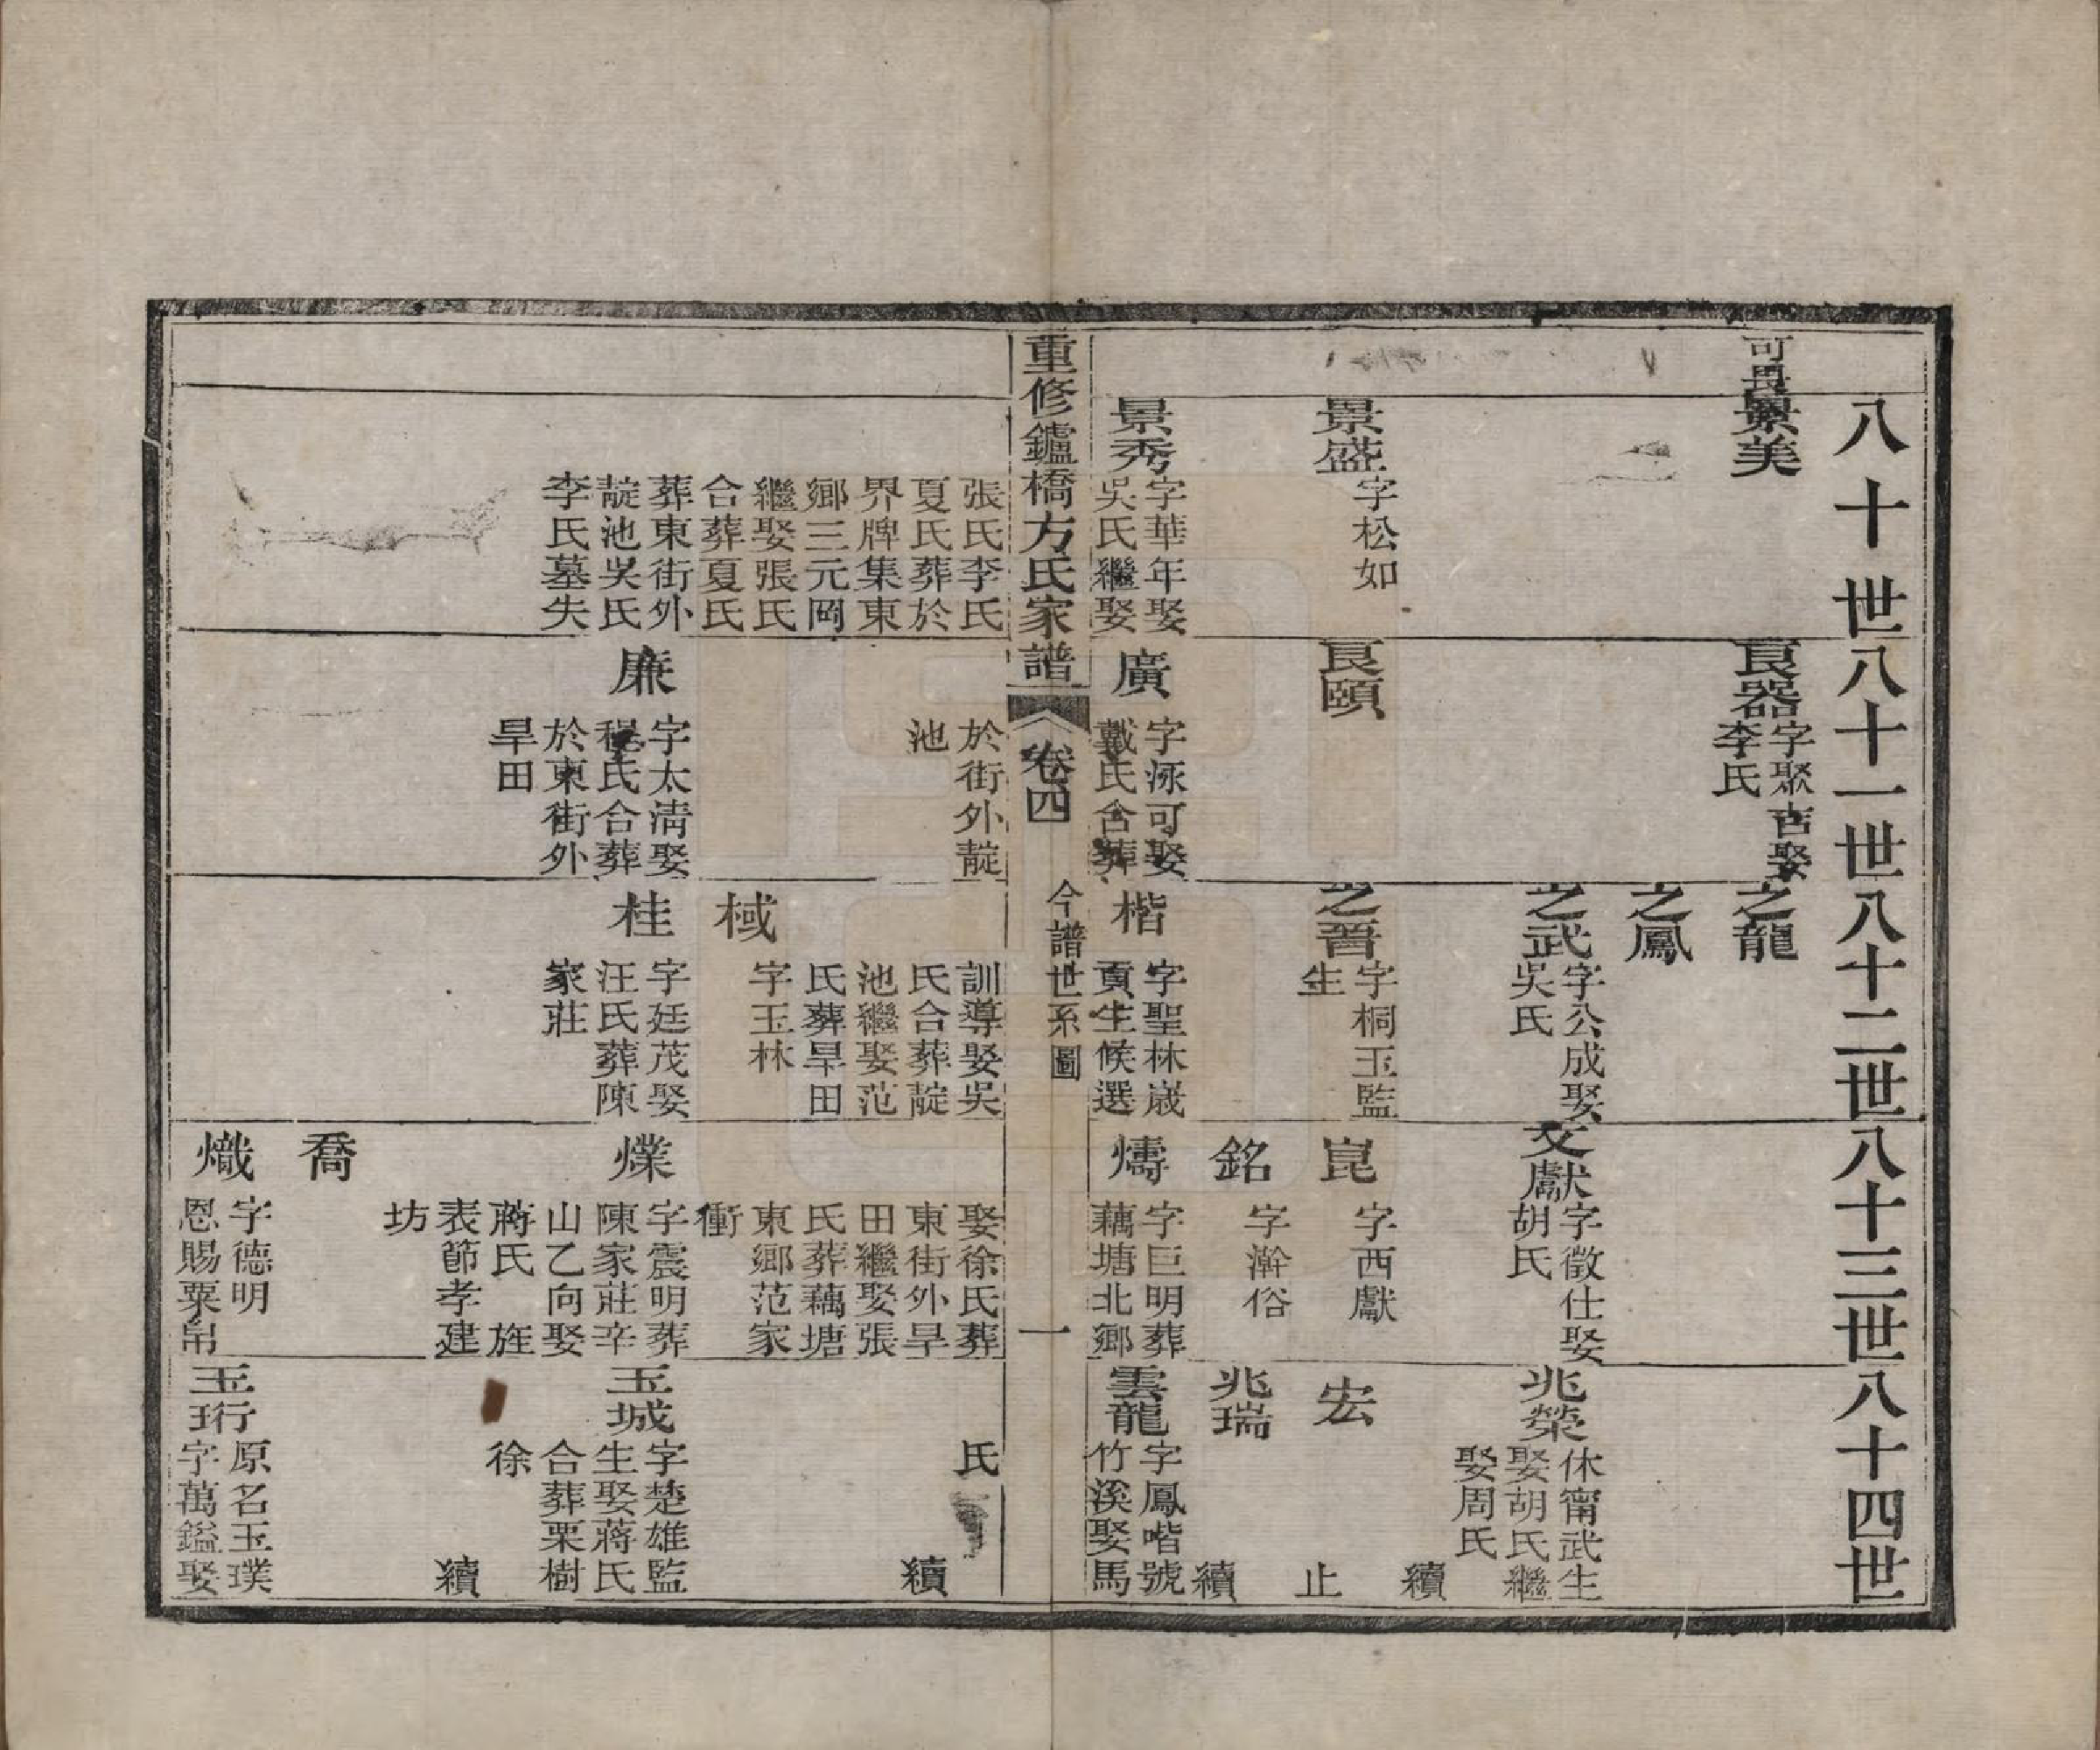 八十世八十一世八十二世八十三世八十四世
可畏
景美
景盛
字松如
景秀
字華年娶
吳氏繼娶
良器
字聚吉娶
李氏
良頤
廣
字泳可娶
戴氏合葬
之龍
之鳳
之武
字公成娶
吳氏
之晋
字桐玉監
生
楷
字聖林歲
貢生候選
文獻
字徵仕娶
胡氏
崑
字西獻
銘
字澣俗
燽
字巨明葬
藕塘北鄉
兆榮
休甯武生
娶胡氏繼
娶周氏
續
宏
止
兆瑞
續
雲龍
字鳳喈號
竹溪娶馬
重修鑪橋方氏家譜
卷四
今譜世系圖
一
張氏李氏
夏氏葬於
界牌集東
鄉三元岡
繼娶張氏
合葬夏氏
葬東街外
靛池吳氏
李氏墓失
於街外靛
池
廉
字太清娶
程氏合葬
於東街外
旱田
訓導娶吳
氏合葬靛
池繼娶范
氏葬旱田
棫
字玉林
桂
字廷茂娶
汪氏葬陳
家莊
娶徐氏葬
東街外旱
田繼娶張
氏葬藕塘
東鄉范家
衝
㸁
字震明葬
陳家莊辛
山乙向娶
蔣氏 旌
表節孝建
坊
喬
熾
字德明
恩賜粟帛
氏
續
玉城
字楚雄監
生娶蔣氏
合葬栗樹
徐
續
玉珩
原名玉璞
字萬鎰娶